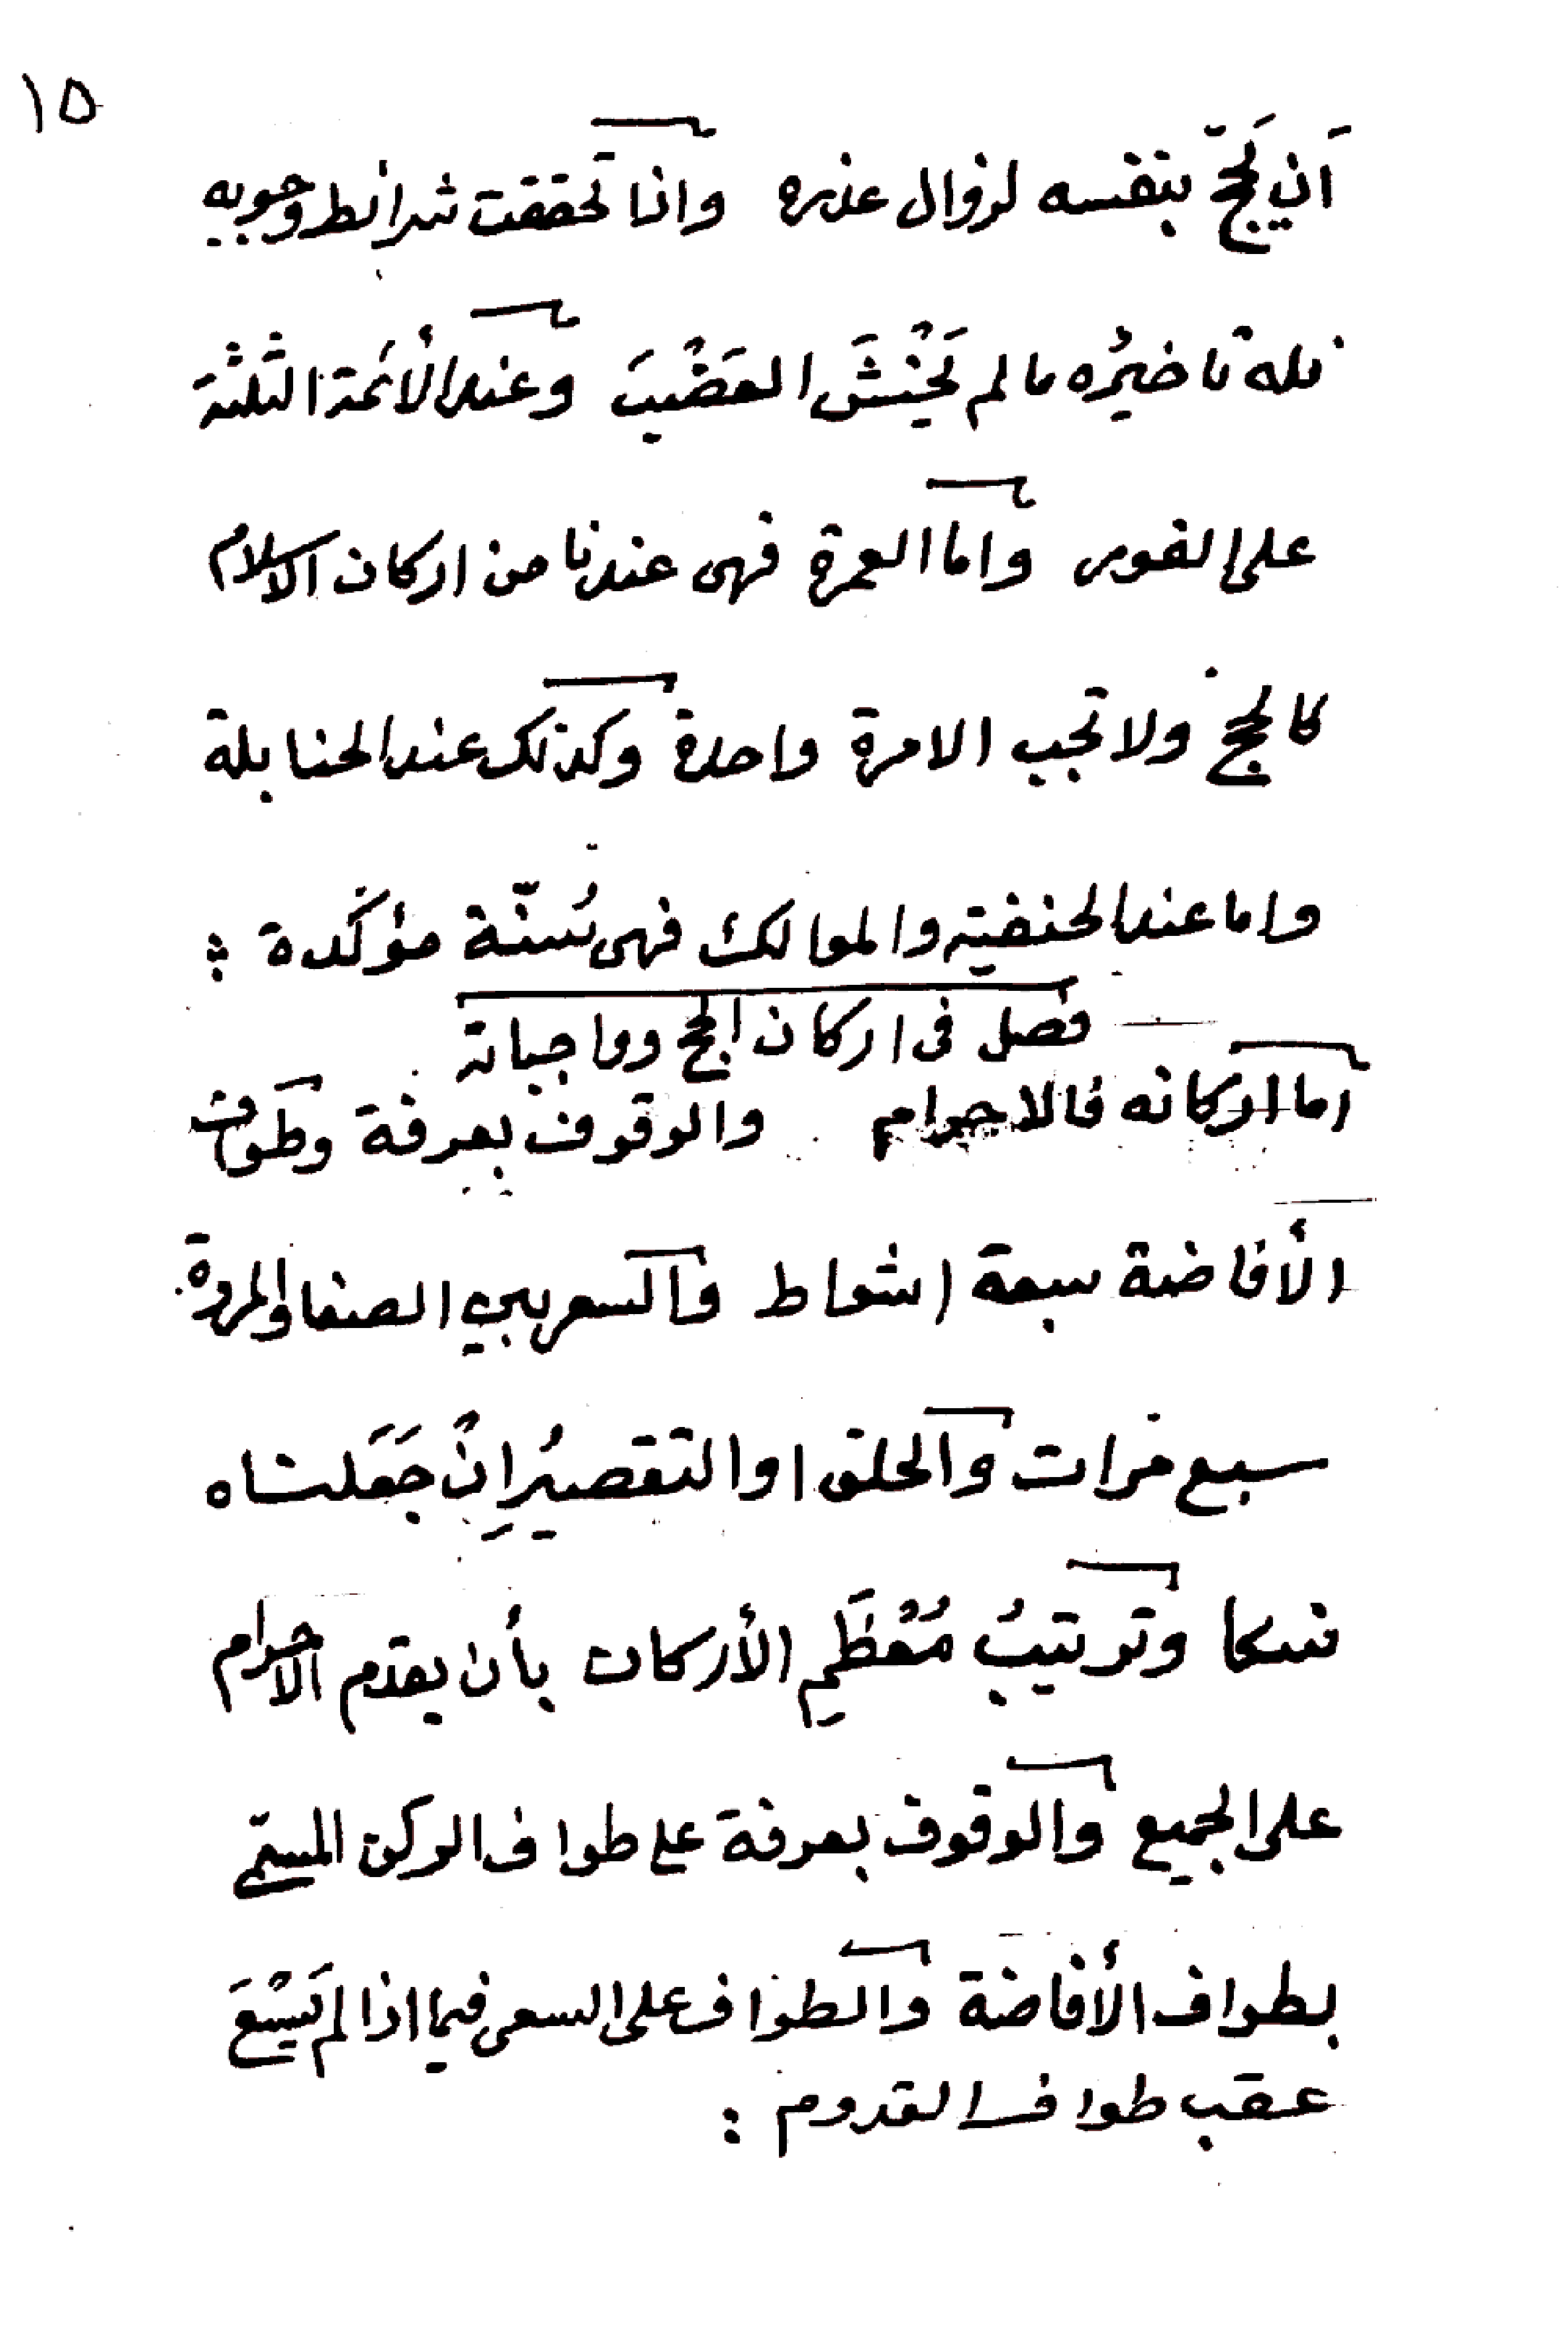 ١٥
أن يَحجّ بنفسه لزوال عذره واذا تحققت شرائط وجوبه
فله تاخيرُه مالم يَخْشَ العَضْبَ وعند الأئمة الثلثة
على الفور واما العمرة فهى عندنا من اركان الاسلام
كالحج ولا تجب الا مرة واحدة وكذلك عند الحنابلة
واما عند الحنفية والموالك فهى سُنّة مؤكَّدة :
فصل فى اركان الحج وواجباته
اَما اركانه فالاحرام والوقوف بعرفة وطَواف
الأفاضة سبعة اشواط والسعى بين الصفا والمروة
سبع مرات والحلق او التقصيُر اِنْ جَعَلناه
نسكا وترتيبُ مُعْظَمِ الأركان بأن يقدم الاحرام
على الجميع والوقوف بعرفة على طواف الركن المسمّى
بطواف الأفاضة والطواف على السعى فيما اذا لم يَسْعَ
عقب طواف القدوم :